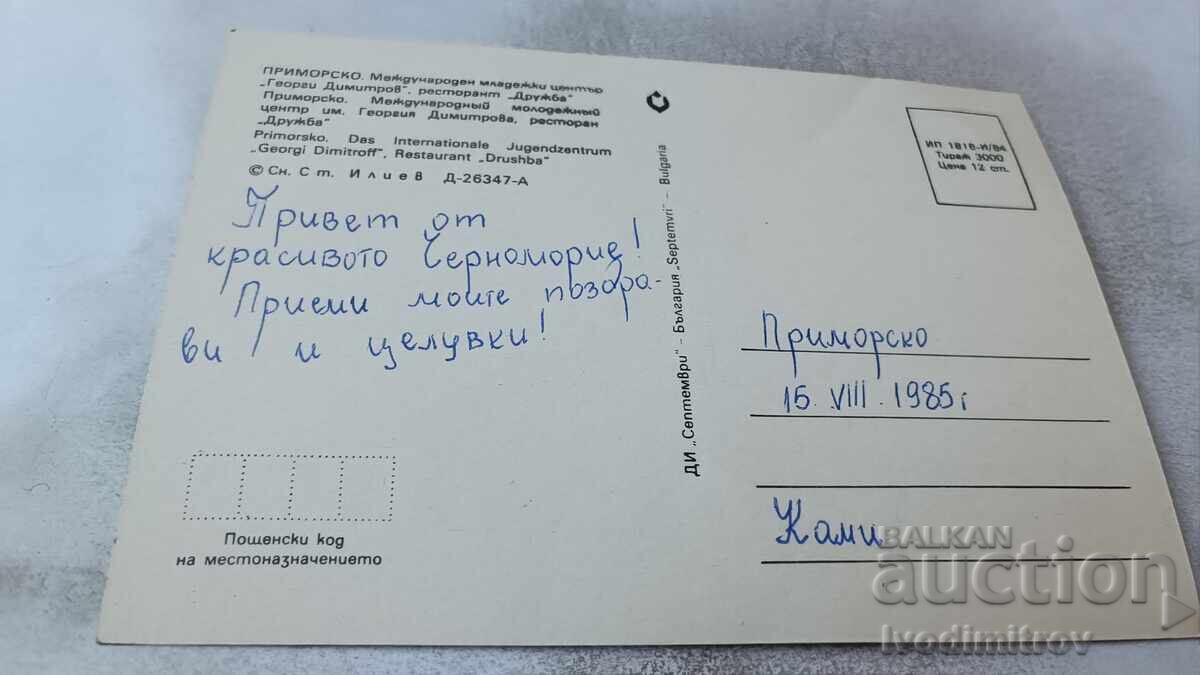 ПРИМОРСКО. Международен младежки център
„Георги Димитров", ресторант „Дружба"
Приморско. Международный молодежный
центр им. Георгия Димитрова, ресторан
„Дружба"
Primorsko. Das Internationale Jugendzentrum
„Georgi Dimitroff", Restaurant „Drushba"
© Сн. Ст. Илиев Д-26347-А
Привет от
красивото Черноморие!
Приеми моите поздра-
ви и целувки!
Пощенски код
на местоназначението
ДИ „Септември" – България „Septemvri" – Bulgaria
ИП 1818-И/84
Тираж 3000
Цена 12 ст.
Приморско
15. VIII. 1985 г
Ками
BALKAN
auction
Ivodimitrov